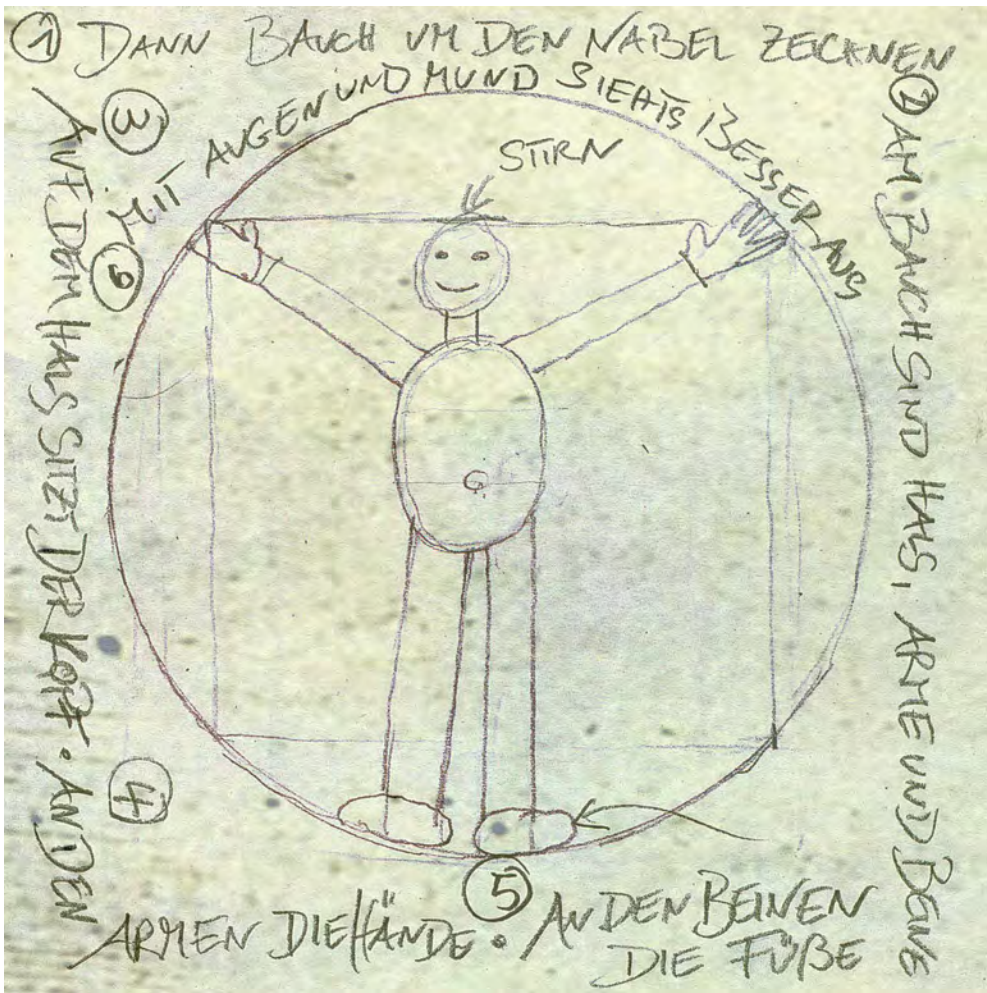 ① DANN BAUCH UM DEN NABEL ZEICHNEN
② AM BAUCH SIND HALS, ARME UND BEINE
③ AUF DEM HALS SITZT DER KOPF • AN DEN
④ ARMEN DIE HÄNDE •
⑤ AN DEN BEINEN
DIE FÜßE
⑥ MIT AUGEN UND MUND SIEHTS BESSER AUS
STIRN